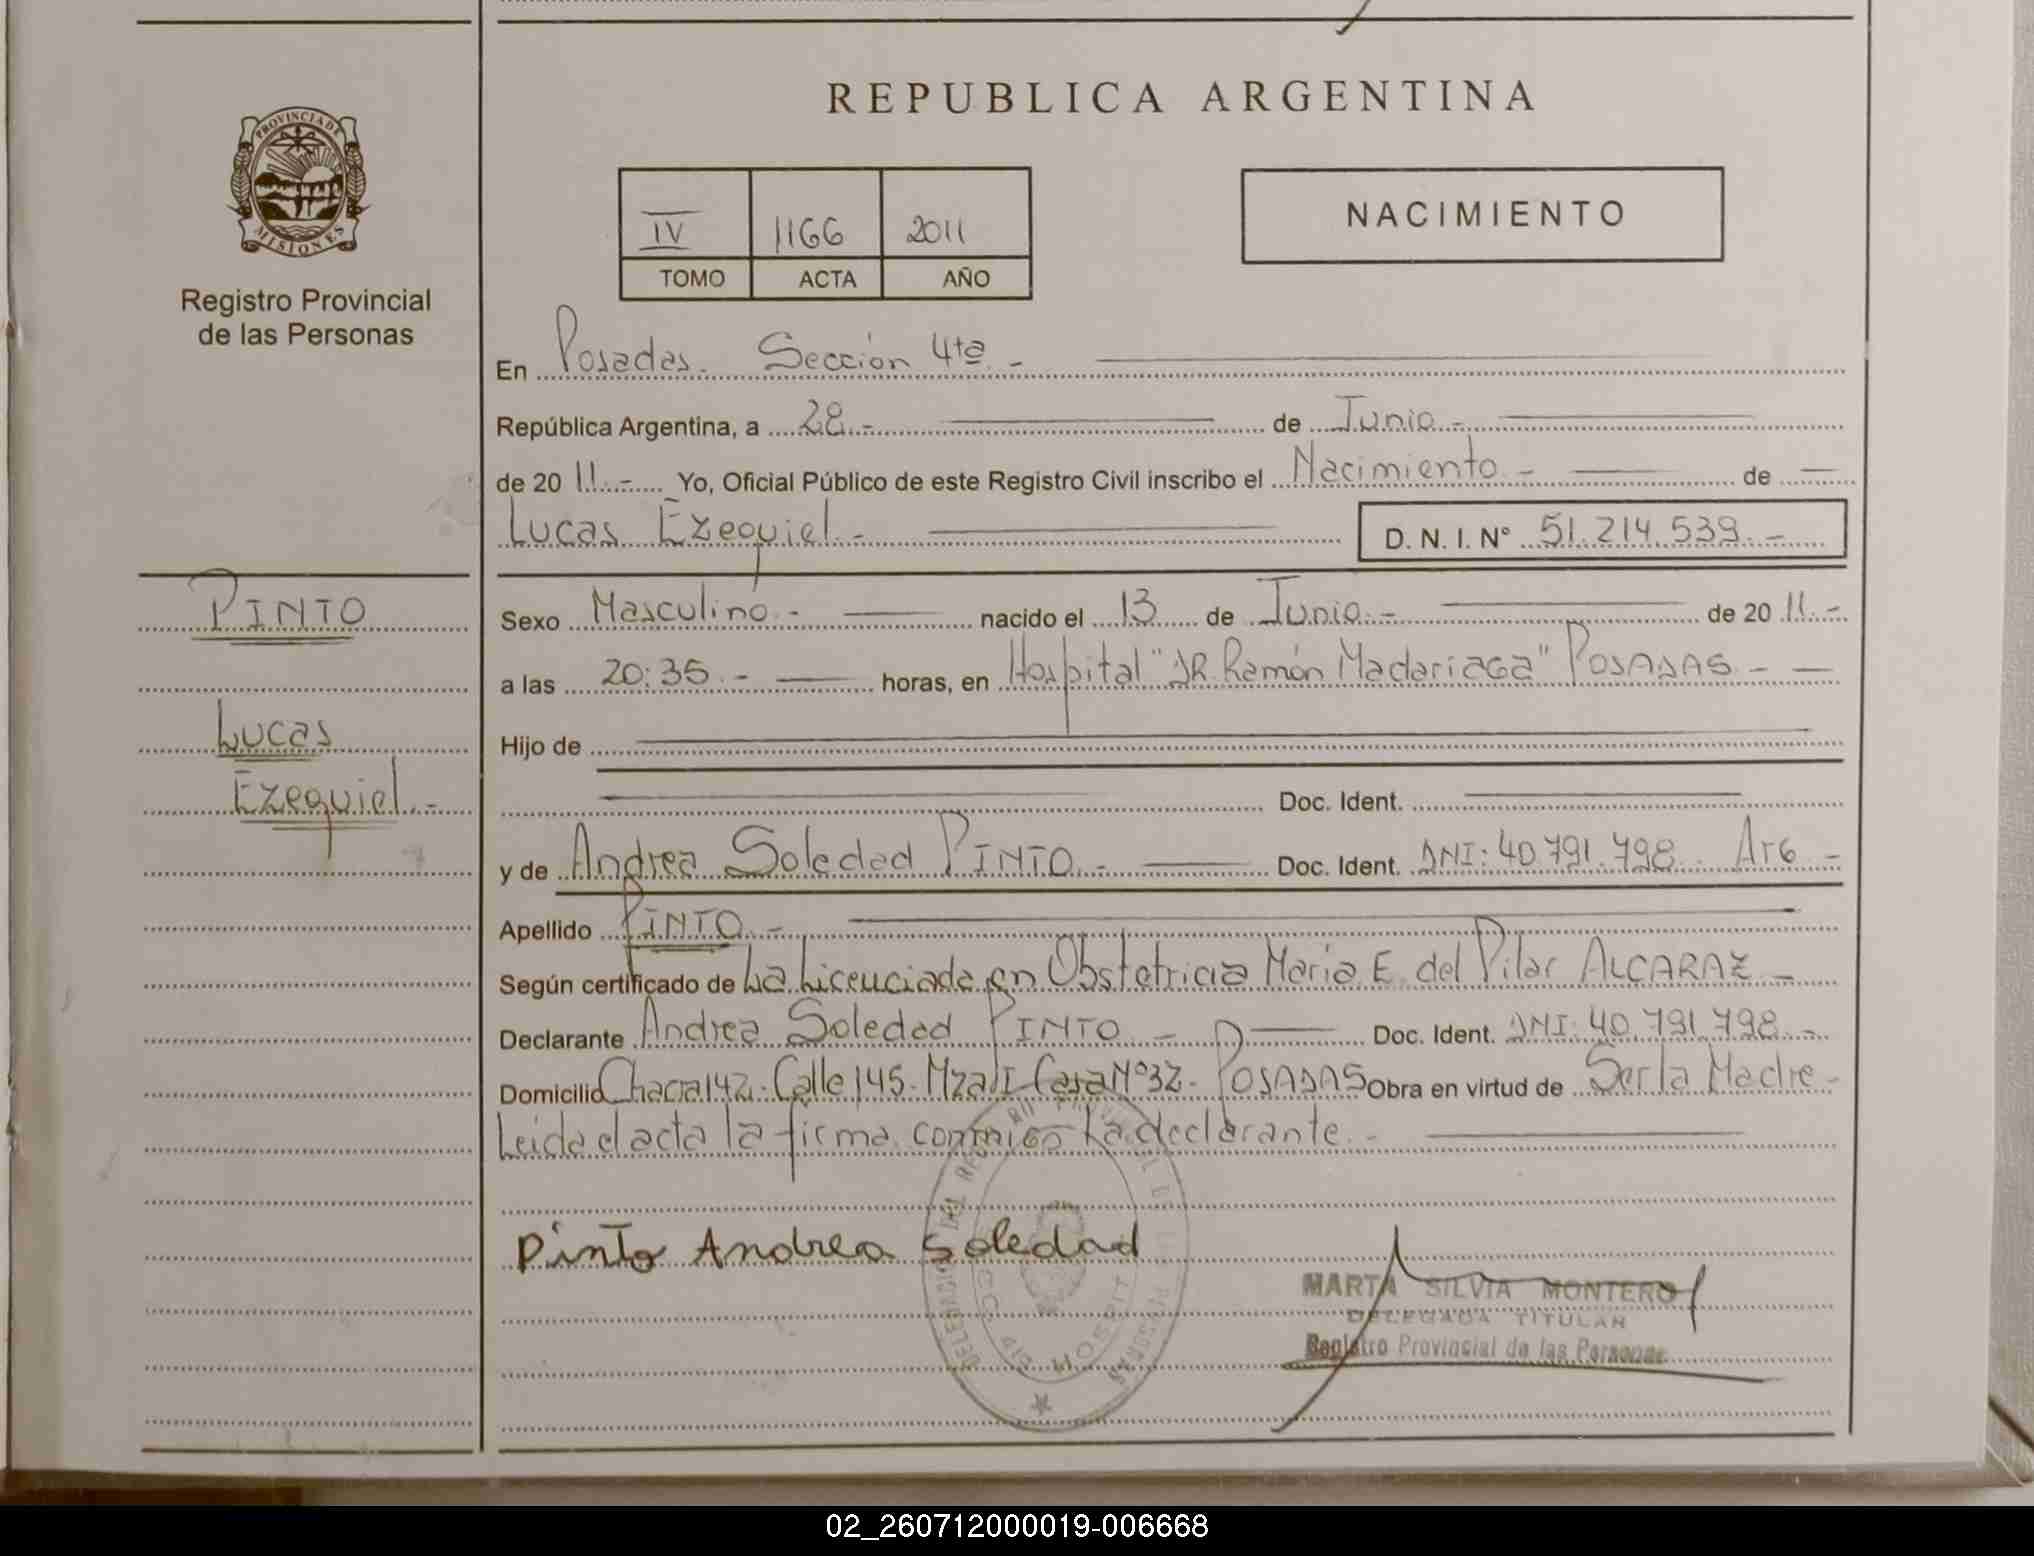 REPUBLICA ARGENTINA
PROVINCIA DE
MISIONES
Registro Provincial
de las Personas
IV 1166 2011
TOMO ACTA AÑO
NACIMIENTO
En Posadas. Sección 4ta.-
República Argentina, a 28.- de Junio.-
de 20 11.- Yo, Oficial Público de este Registro Civil inscribo el Nacimiento.- de
Lucas Ezequiel.- D. N. I. Nº 51.214.539.-
PINTO
Lucas
Ezequiel.-
Sexo Masculino.- nacido el 13 de Junio.- de 20 11.-
a las 20:35.- horas, en Hospital "DR. Ramón Madariaga" POSADAS.-
Hijo de
Doc. Ident.
y de Andrea Soledad PINTO.- Doc. Ident. DNI: 40.791.798. Arg.-
Apellido PINTO.-
Según certificado de La Licenciada en Obstetricia María E. del Pilar ALCARAZ.-
Declarante Andrea Soledad PINTO.- Doc. Ident. DNI: 40.791.798.-
Domicilio Chacra 142. Calle 145. Mza I Casa Nº 32. POSADAS Obra en virtud de Ser la Madre.-
Leida el acta la firma conmigo La declarante.-
Pinto Andrea Soledad
MARTA SILVIA MONTERO
DELEGADA TITULAR
Registro Provincial de las Personas
02_260712000019-006668